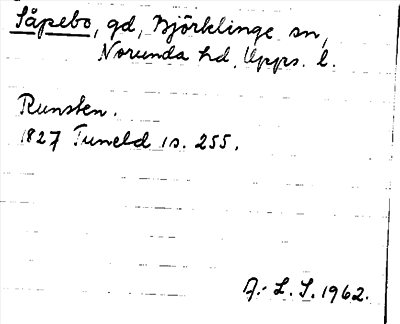 Såpebo, gd, Björklinge sn,
Norunda hd, Upps. l.
Runsten.
1827 Tuneld s. 255.
A.-L. S. 1962.